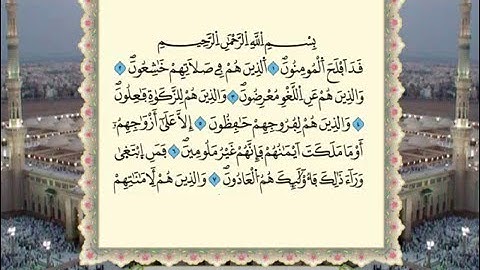 بِسْمِ اِ۬للَّهِ اِ۬لرَّحْمَٰنِ اِ۬لرَّحِيمِ
قَدَ اَفْلَحَ اَ۬لْمُومِنُونَ ١ اَ۬لذِينَ هُمْ فِي صَلَاتِهِمْ خَٰشِعُونَ ٢
وَالذِينَ هُمْ عَنِ اِ۬للَّغْوِ مُعْرِضُونَ ٣ وَالذِينَ هُمْ لِلزَّكَوٰةِ فَٰعِلُونَ
٤ وَالذِينَ هُمْ لِفُرُوجِهِمْ حَٰفِظُونَ ٥ إِلَّا عَلَىٰ أَزْوَٰجِهِمُۥٓ
أَوْ مَا مَلَكَتَ اَيْمَٰنُهُمْ فَإِنَّهُمْ غَيْرُ مَلُومِينَ ٦ فَمَنِ اِ۪بْتَغ۪ىٰ
وَرَآءَ ذَٰلِكَ فَأُوْلَٰٓئِكَ هُمُ اُ۬لْعَادُونَ ٧ وَالذِينَ هُمْ لِأَمَٰنَٰتِهِمْ